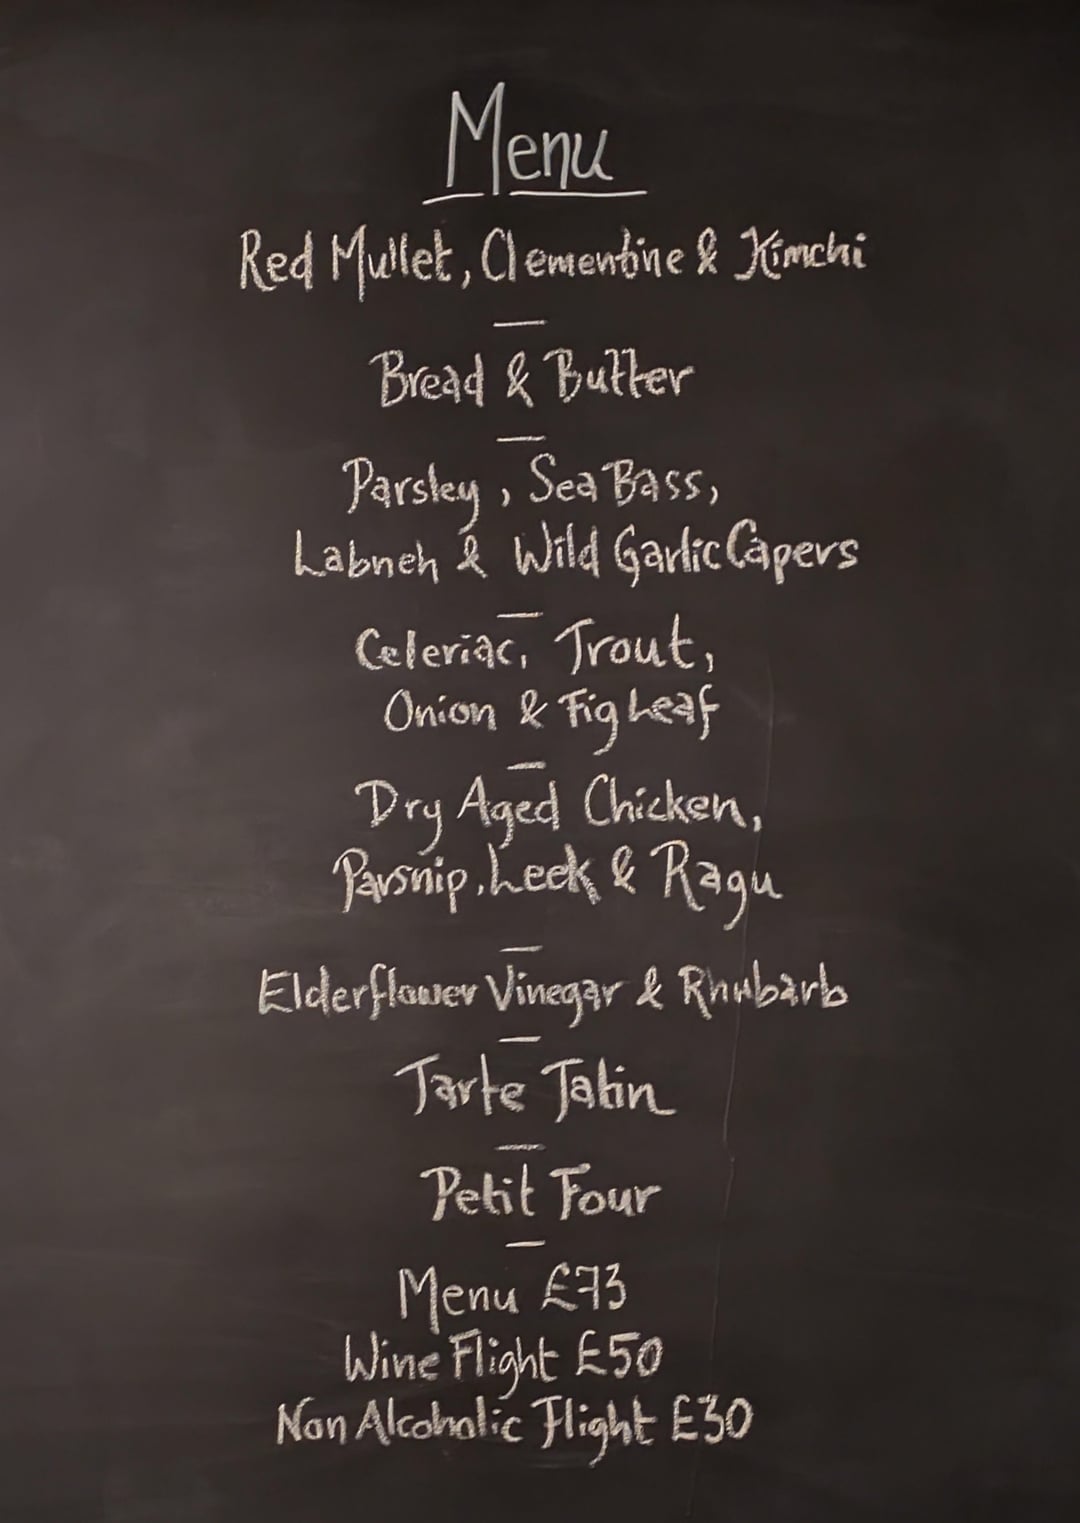 Menu
Red Mullet, Clementine & Kimchi
Bread & Butter
Parsley, Sea Bass,
Labneh & Wild Garlic Capers
Celeriac, Trout,
Onion & Fig Leaf
Dry Aged Chicken,
Parsnip, Leek & Ragu
Elderflower Vinegar & Rhubarb
Tarte Tatin
Petit Four
Menu £73
Wine Flight £50
Non Alcoholic Flight £30